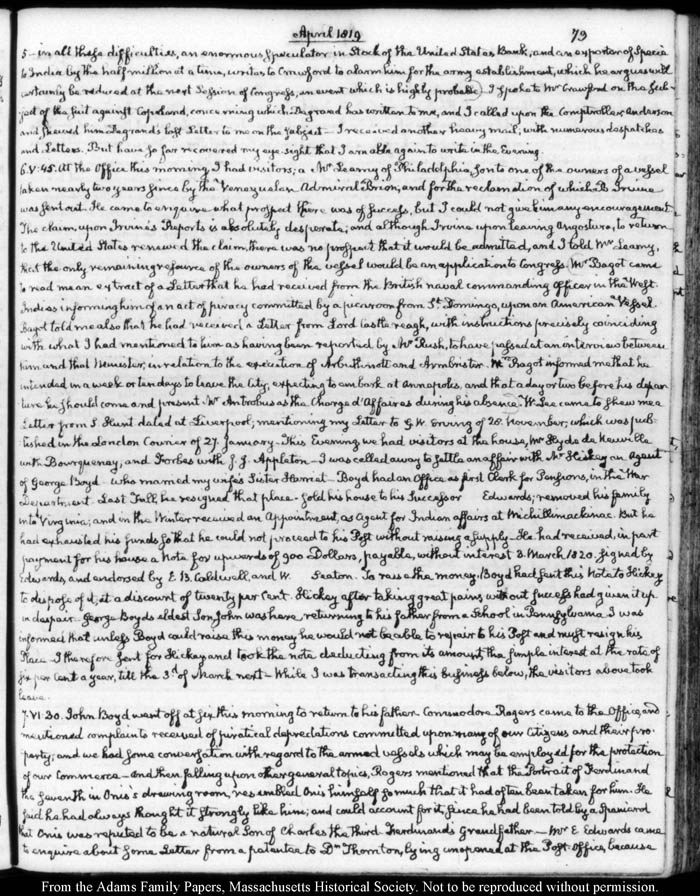 April 1819 79
5— in all these difficulties, an enormous Speculator in Stock of the United States Bank, and an exporter of Specie
to India by the half million at a time, writes to Crawford to alarm him for the army establishment, which he argues will
certainly be reduced at the next Session of Congress, an event which is highly probable— I spoke to Mr Crawford on the Sub-
ject of the suit against Copeland, concerning which Degrand has written to me, and I called upon the Comptroller Anderson
and shewed him Degrand's last Letter to me on the subject— I received another heavy mail, with numerous despatches
and Letters. But have so far recovered my eye-sight that I am able again to write in the Evening.
6. V:45. At the Office this morning I had visitors; a Mr Leamy of Philadelphia, Son to one of the owners of a vessel
taken nearly two years since by the Venezuelan Admiral Brion, and for the reclamation of which B Irvine
was sent out. He came to enquire what prospect there was of success, but I could not give him any encouragement
The claim, upon Irvine's Reports is absolutely desperate; and although Irvine upon leaving Angostura, to return
to the United States renewed the claim, there was no prospect that it would be admitted, and I told Mr Leamy,
that the only remaining resource of the owners of the vessel would be an application to Congress. Mr Bagot came
to read me an extract of a Letter that he had received from the British naval commanding officer in the West-
Indies informing him of an act of piracy committed by a picaroon from St. Domingo, upon an American Vessel.
Bagot told me also that he had received a Letter from Lord Castlereagh, with instructions precisely coinciding
with what I had mentioned to him as having been reported by Mr Rush, to have passed at an interview between
him and that Minister, in relation to the execution of Arbuthnott and Armbrister. Mr Bagot informed me that he
intended in a week or ten days to leave the City, expecting to embark at Annapolis, and that a day or two before his depar-
ture he should come and present Mr Antrobus as the Chargé d'Affaires during his absence. W. Lee came to shew me a
Letter from S Hunt dated at Liverpool; mentioning my Letter to G. W. Erving of 28. November, which was pub-
lished in the London Courier of 27. January— This Evening we had visitors at the house, Mr Hyde de Neuville
with Bourqueney, and Forbes with J. J. Appleton— I was called away to settle an affair with Mr Hickey an Agent
of George Boyd who married my wife's Sister Harriet— Boyd had an Office as first Clerk for Pensions, in the War
Department. Last Fall, he resigned that place— sold his house to his Successor Edwards; removed his family
into Virginia; and in the Winter received an Appointment, as Agent for Indian affairs at Michillimackinac. But he
had exhausted his funds so that he could not proceed to his Post without raising a supply— He had received, in part
payment for his house a Note for upwards of 900 Dollars, payable, without interest 3. March 1820. signed by
Edwards, and endorsed by E. B. Caldwell, and W. Seaton. To raise the money, Boyd had sent this Note to Hickey
to dispose of it, at a discount of twenty per Cent. Hickey after taking great pains, without success had given it up
in despair— George Boyd's eldest Son, John was here, returning to his father from a School in Pennsylvania I was
informed that unless Boyd could raise this money he would not be able to repair to his Post and must resign his
Place— I therefore sent for Hickey and took the note deducting from its amount, the simple interest at the rate of
six per Cent a year, till the 3d. of March next— While I was transacting this business below, the visitors above took
leave.
7. VI:30. John Boyd went off at six this morning to return to his father— Commodore Rogers came to the Office, and
mentioned complaints received of piratical depredations committed upon many of our Citizens and their pro-
perty; and we had some conversation with regard to the armed vessels which may be employed for the protection
of our Commerce— and then falling upon other general topics, Rogers mentioned that the Portrait of Ferdinand
the Seventh in Onis's drawing room, resembled Onis himself so much that it had often been taken for him. He
said he had always thought it strongly like him; and could account for it, since he had been told by a Spaniard
that Onis was reputed to be a natural Son of Charles the third Ferdinand's grandfather— Mr E Edwards came
to enquire about some Letter from a patentee to Dr Thornton, lying unopened at the Post-Office, because
From the Adams Family Papers, Massachusetts Historical Society. Not to be reproduced without permission.